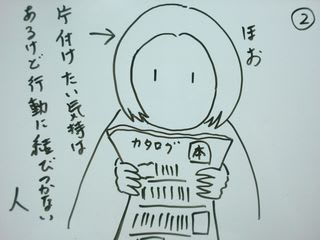 ②
ほお
片付けたい気持は
あるけど行動に結びつかない
人
カタログ
本